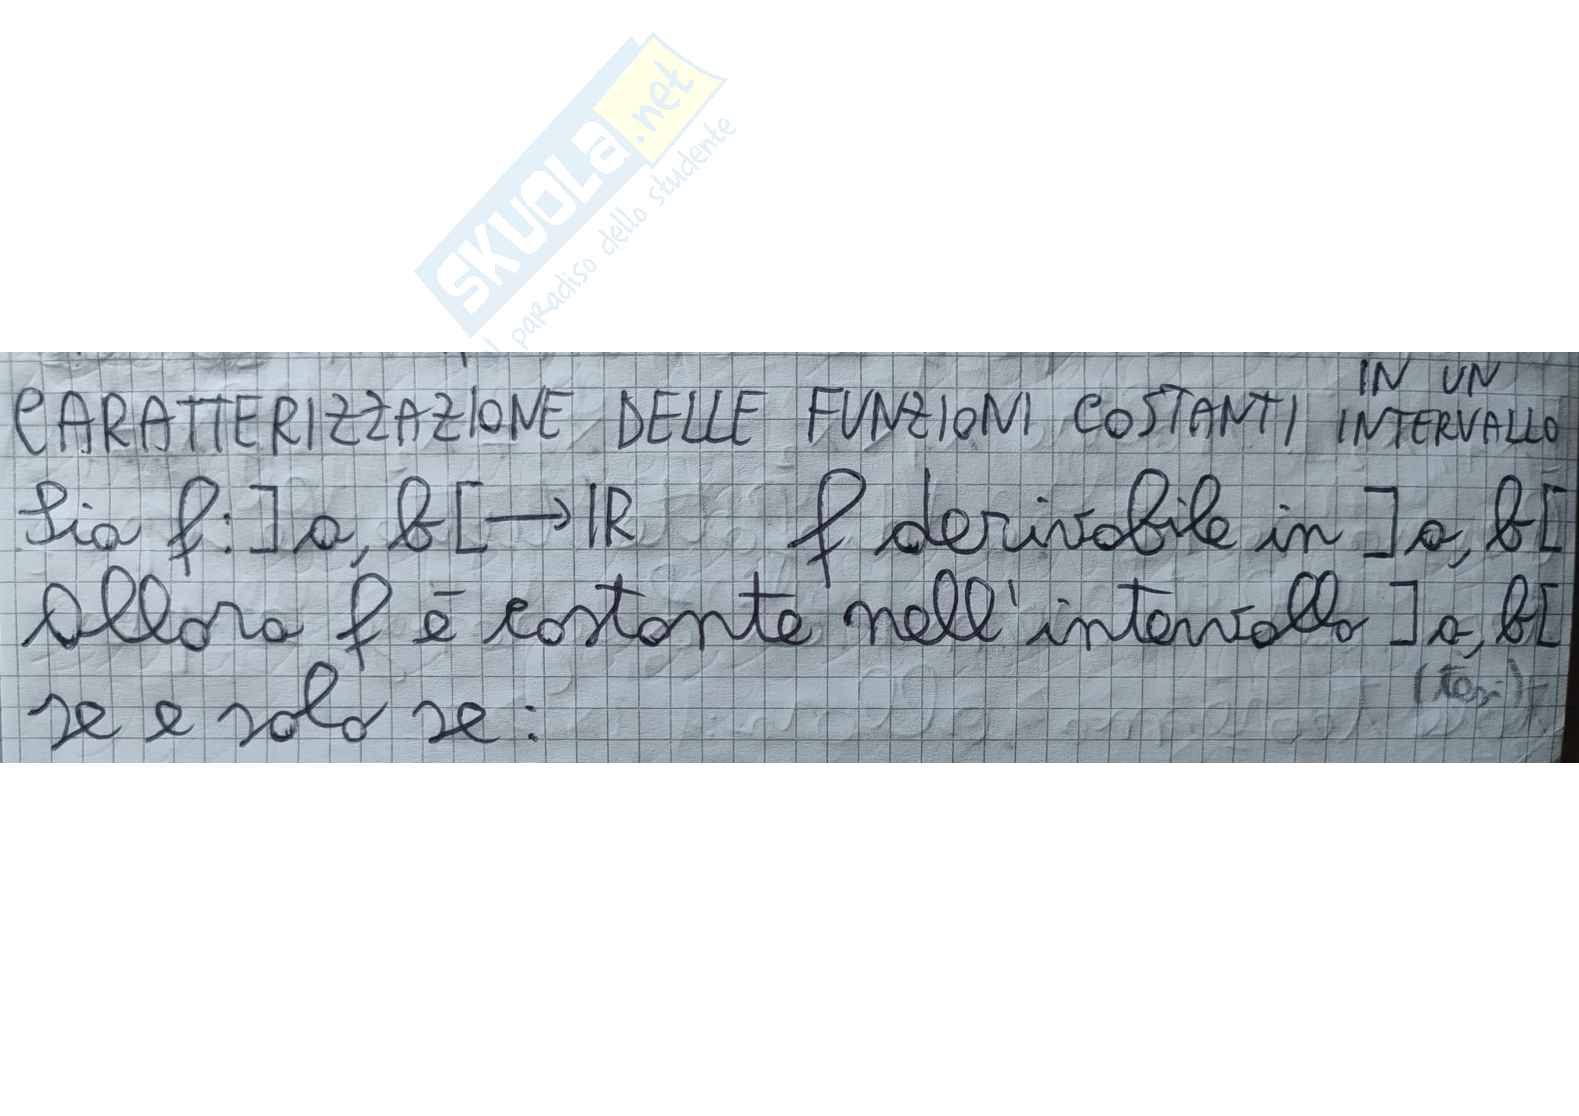 SKUOLa.net
il paradiso dello studente
CARATTERIZZAZIONE DELLE FUNZIONI COSTANTI IN UN INTERVALLO
Sia f: ]a, b[ → IR f derivabile in ]a, b[
Allora f è costante nell'intervallo ]a, b[
se e solo se: (tesi)